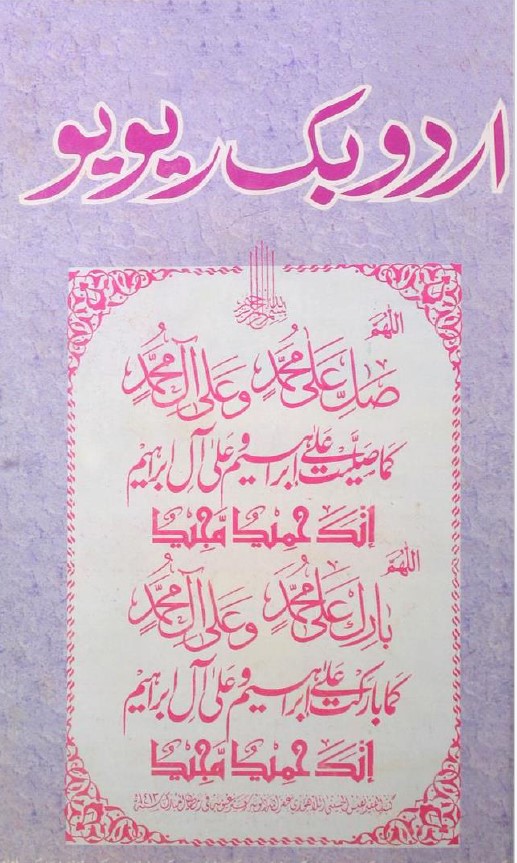 اردو بک ریویو
بسم الله الرحمن الرحيم
اللّٰهم
صل على محمد وعلى آل محمد
كما صليت على ابراهيم وعلى آل ابراهيم
انك حميد مجيد
اللّٰهم
بارك على محمد وعلى آل محمد
كما باركت على ابراهيم وعلى آل ابراهيم
انك حميد مجيد